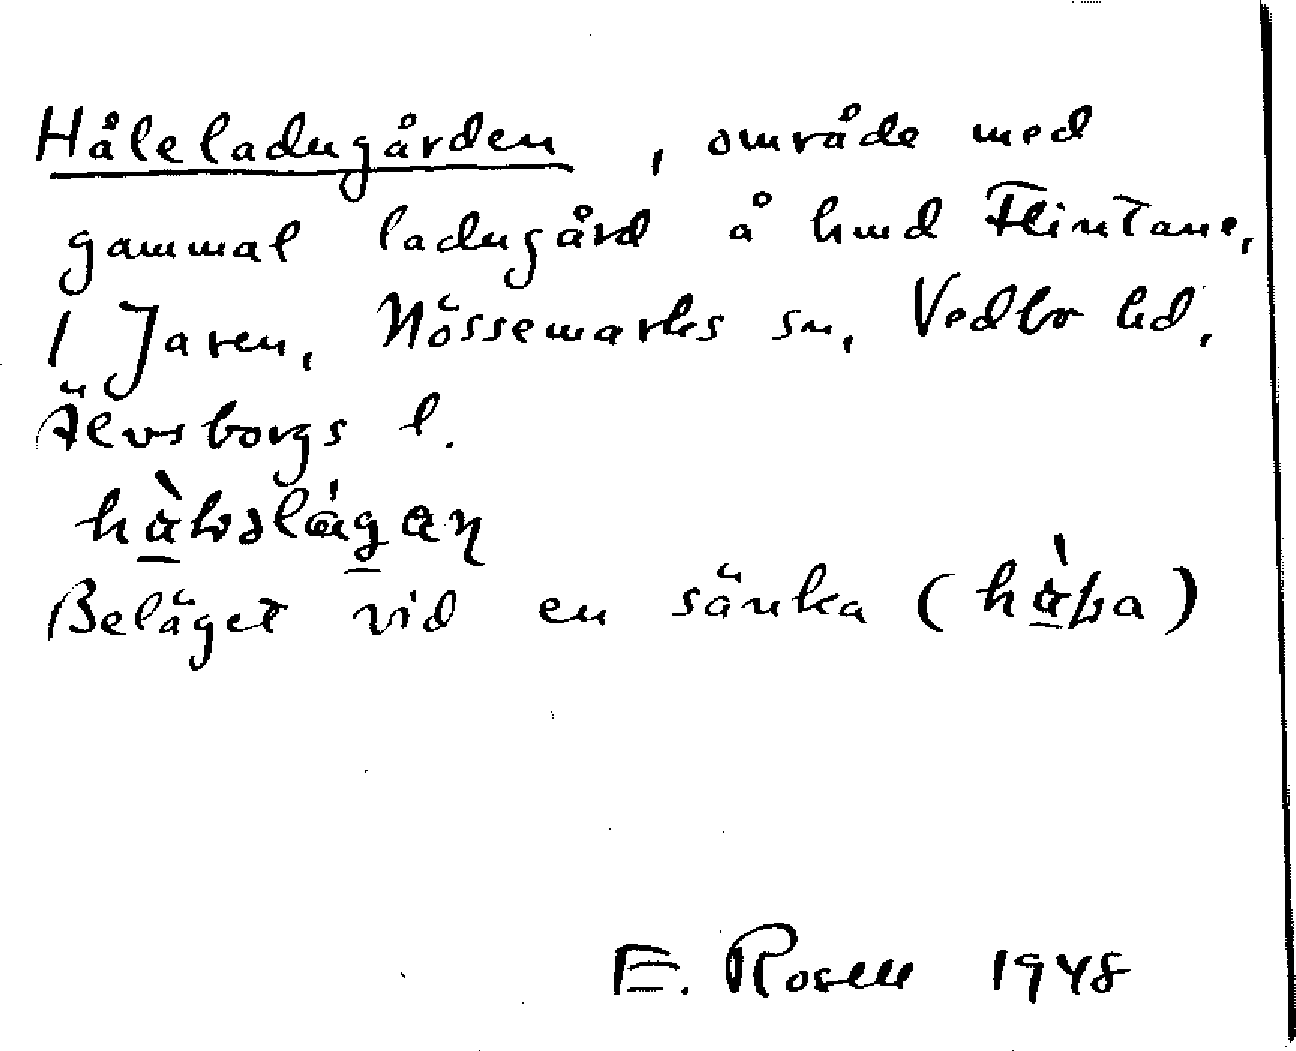 Håleladugården, område med
gammal ladugård å hmd Flintane,
1 Jaren, Nössemarks sn, Vedbo hd,
Älvsborgs l.
Beläget vid en sänka
E. Rosell 1948